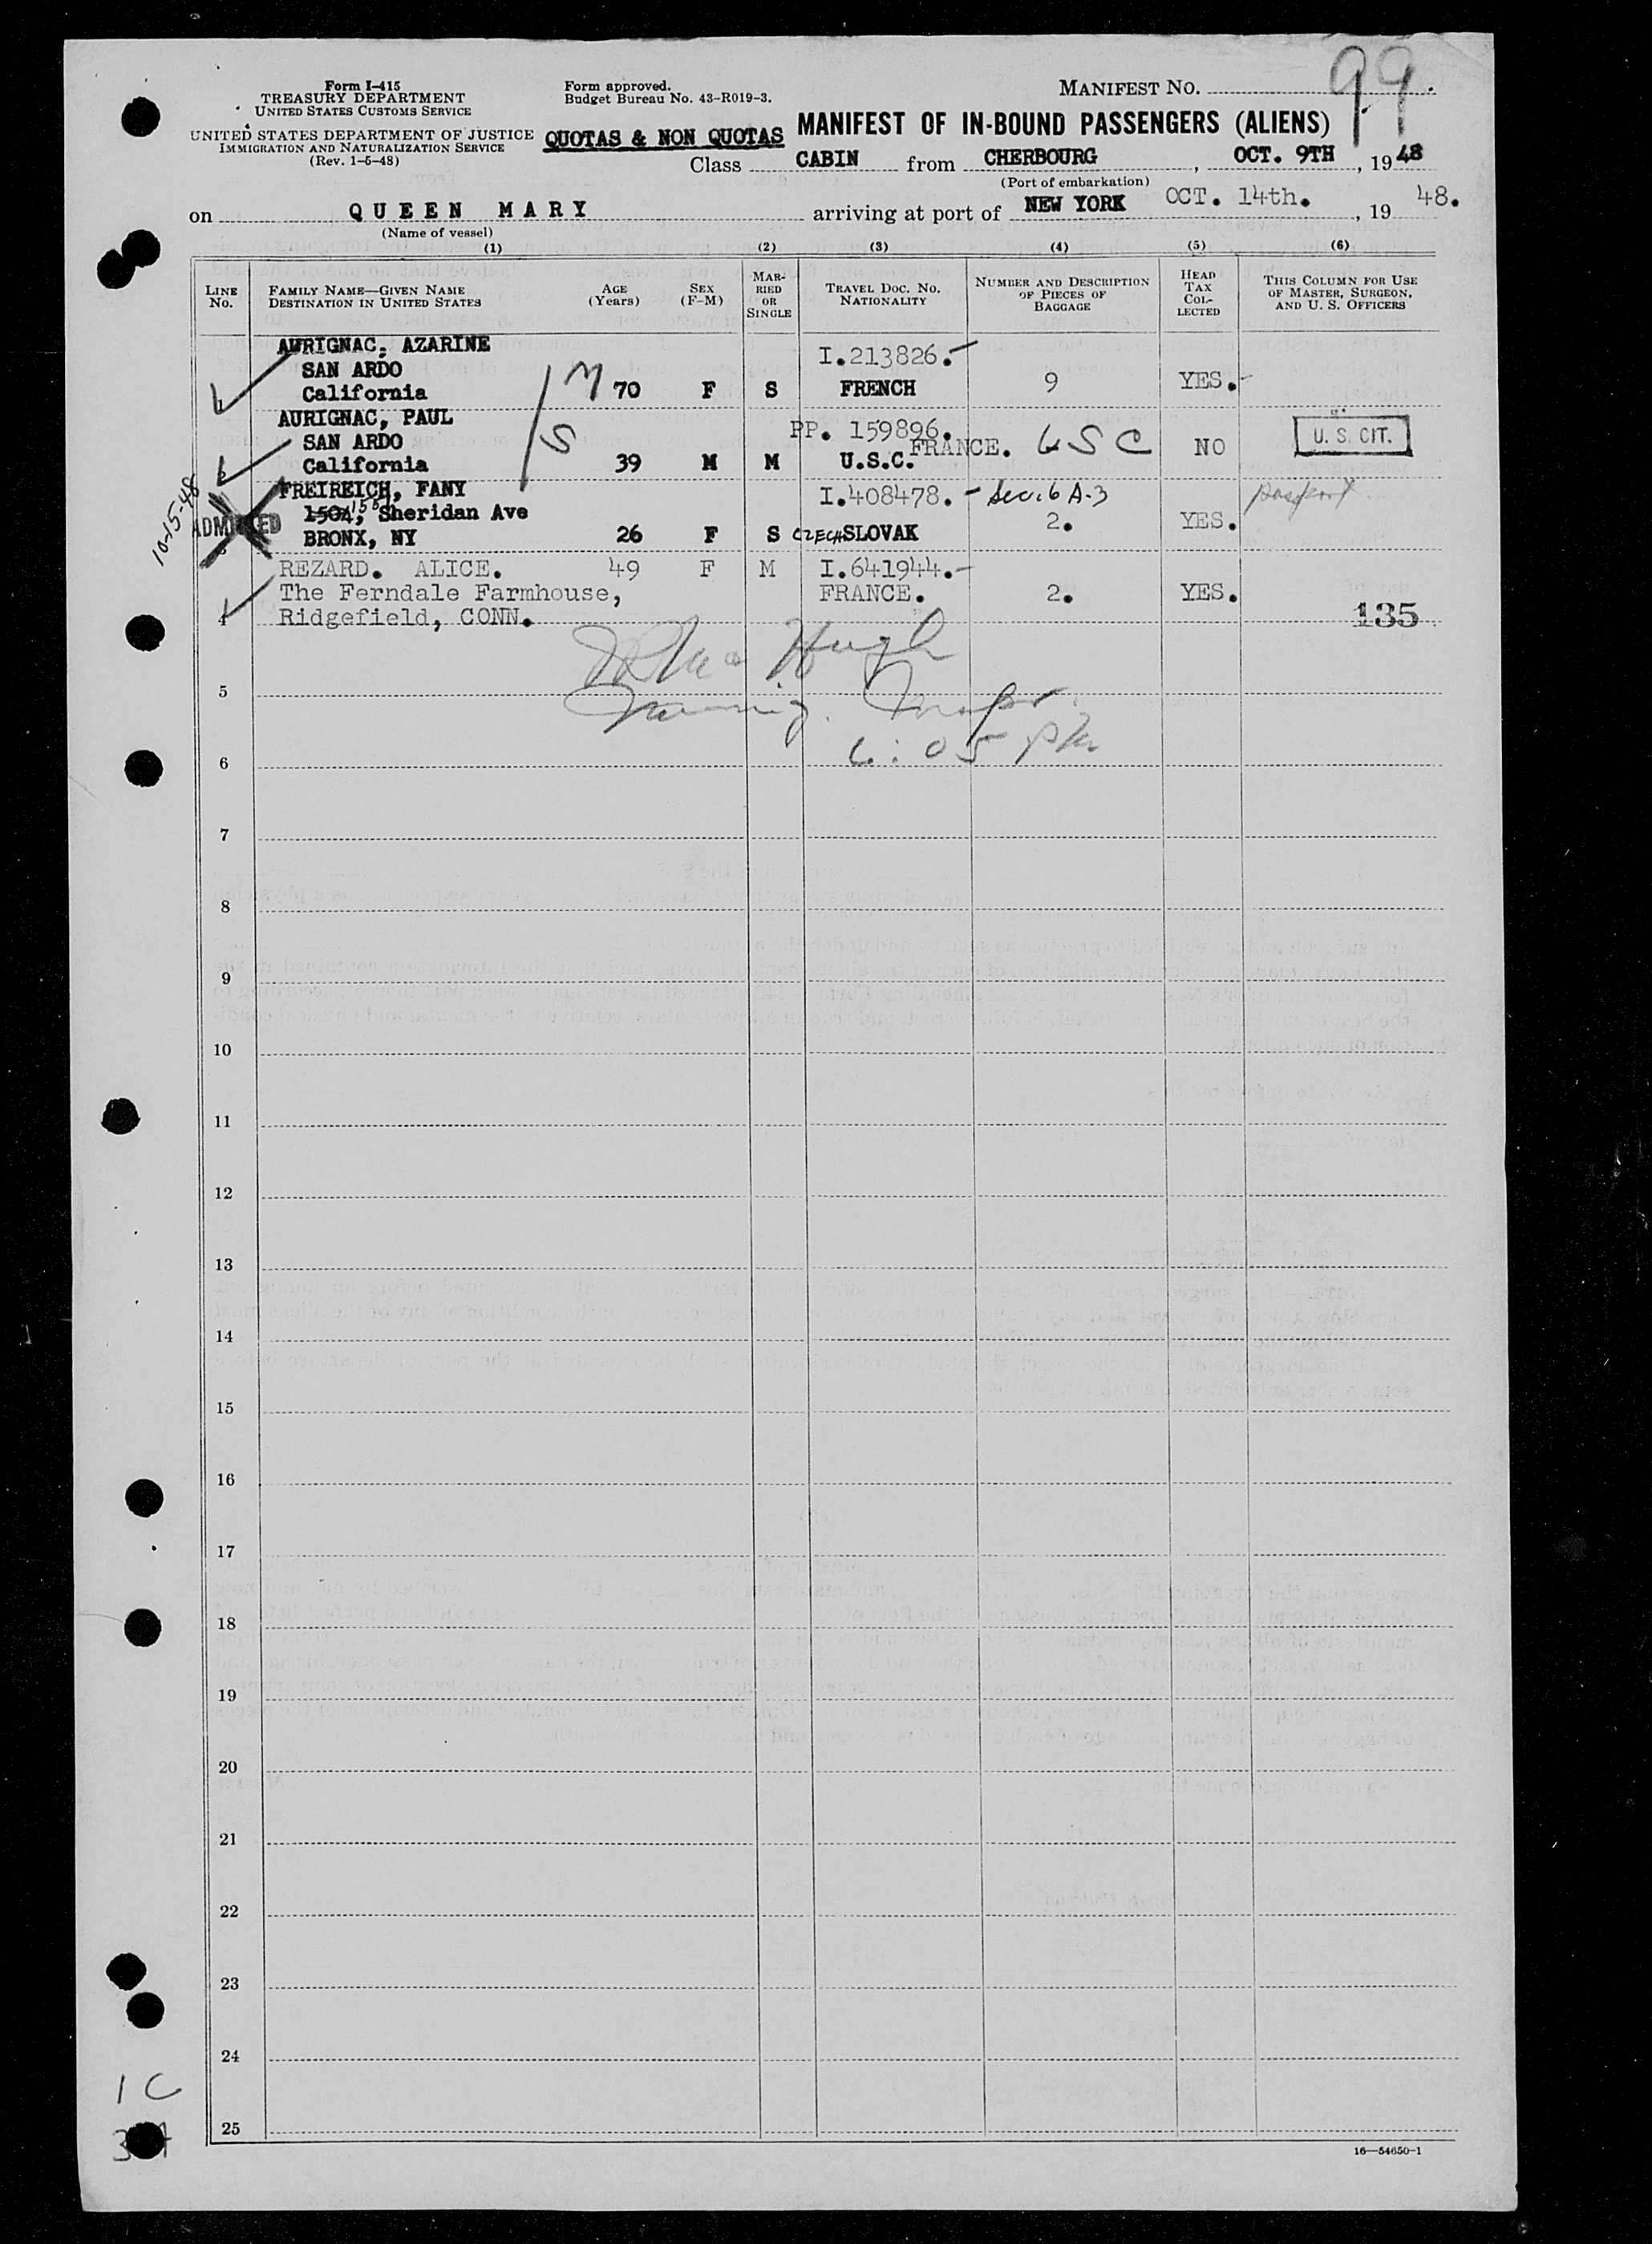 Form I-415
TREASURY DEPARTMENT
UNITED STATES CUSTOMS SERVICE
UNITED STATES DEPARTMENT OF JUSTICE
IMMIGRATION AND NATURALIZATION SERVICE
(Rev. 1-5-48)
Form approved.
Budget Bureau No. 43-R019-3.
MANIFEST NO. 99
QUOTAS & NON QUOTAS MANIFEST OF IN-BOUND PASSENGERS (ALIENS)
Class CABIN from CHERBOURG, OCT. 9TH, 1948
(Port of embarkation)
on QUEEN MARY arriving at port of NEW YORK OCT. 14th., 19 48.
(Name of vessel)
(1) (2) (3) (4) (5) (6)
LINE No. FAMILY NAME—GIVEN NAME DESTINATION IN UNITED STATES AGE (Years) SEX (F-M) MARRIED OR SINGLE TRAVEL DOC. No. NATIONALITY NUMBER AND DESCRIPTION OF PIECES OF BAGGAGE HEAD TAX COLLECTED THIS COLUMN FOR USE OF MASTER, SURGEON, AND U. S. OFFICERS
AURIGNAC, AZARINE I.213826.-
SAN ARDO
1 California M 70 F S FRENCH 9 YES.-
AURIGNAC, PAUL PP. 159896.
SAN ARDO S FRANCE. USC NO U. S. CIT.
2 California 39 M M U.S.C.
10-15-48
FREIREICH, FANY I.408478.- Sec. 6 A-3 passport
ADMITTED 1504, 155 Sheridan Ave 2. YES.
3 BRONX, NY 26 F S CZECHSLOVAK
REZARD. ALICE. 49 F M I.641944.-
The Ferndale Farmhouse, FRANCE. 2. YES.
4 Ridgefield, CONN. 135
Hugh
5 Immig. Inspr.
6:05 PM
6
7
8
9
10
11
12
13
14
15
16
17
18
19
20
21
22
23
24
25
1 C
16—54650-1